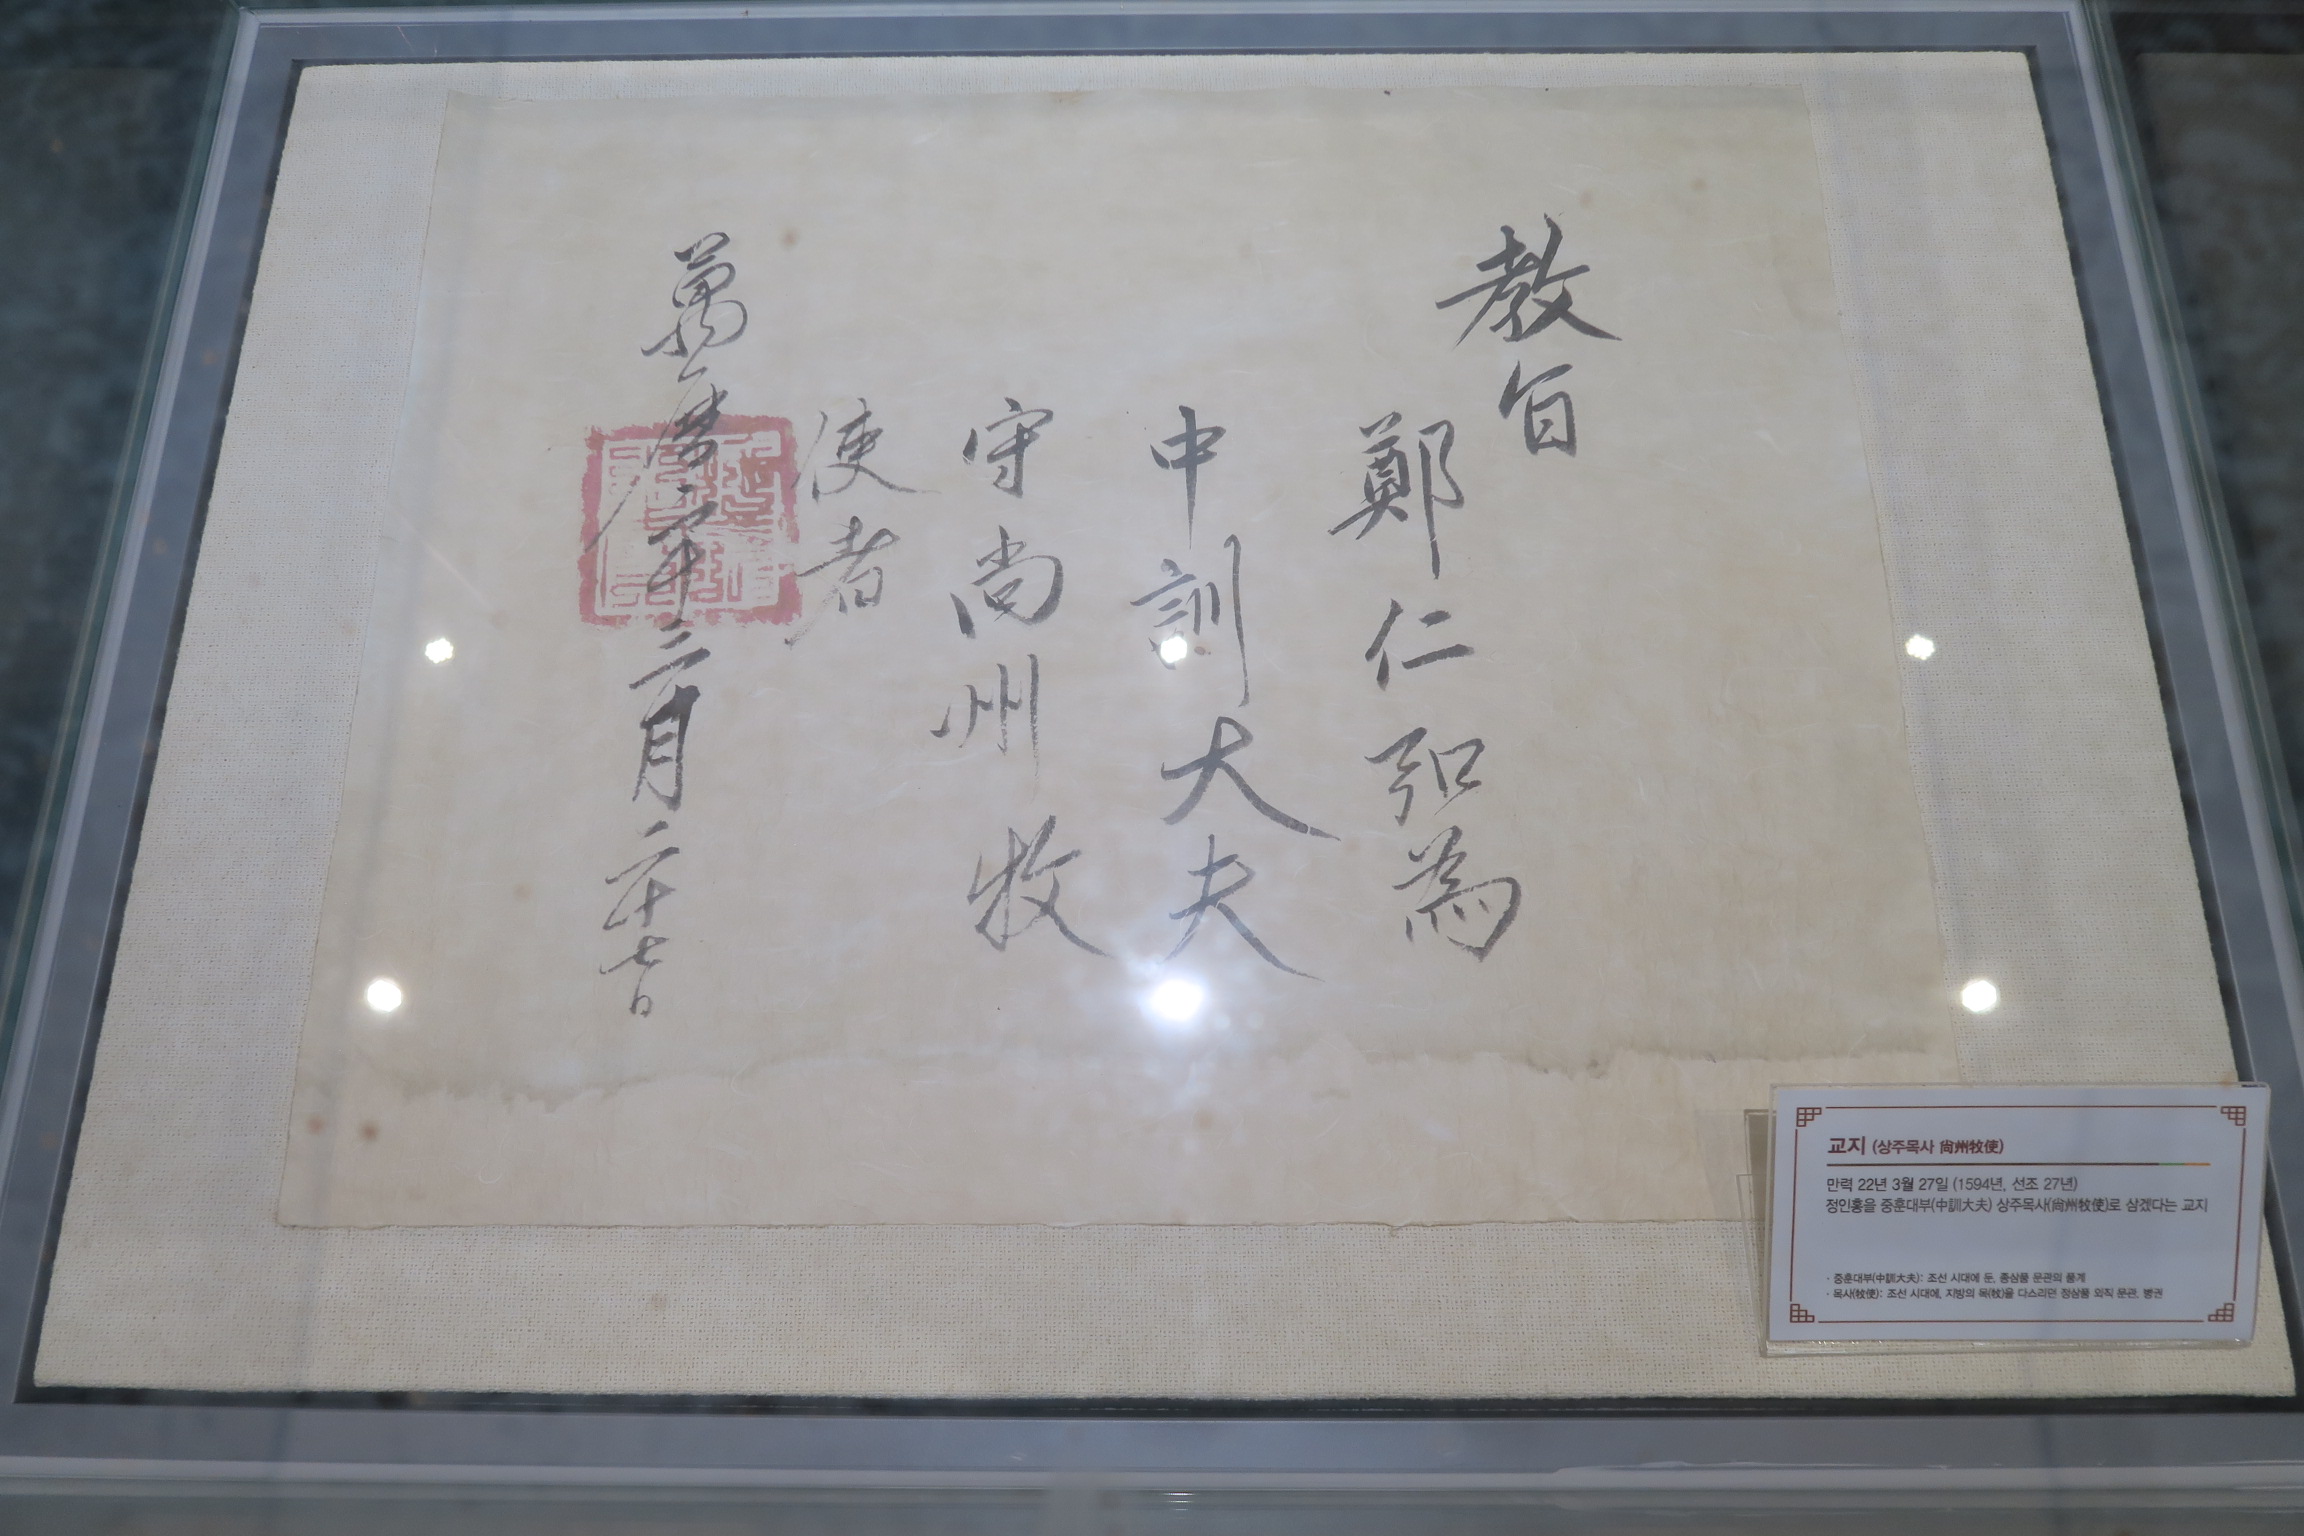 教旨
鄭仁弘為
中訓大夫
守尚州牧
使者
萬曆年三月二十七日
교지 (상주목사 尙州牧使)
만력 22년 3월 27일 (1594년, 선조 27년)
정인홍을 중훈대부(中訓大夫) 상주목사(尙州牧使)로 삼겠다는 교지
· 중훈대부(中訓大夫): 조선 시대에 둔, 종삼품 문관의 품계
· 목사(牧使): 조선 시대에, 지방의 목(牧)을 다스리던 정삼품 외직 문관. 병권